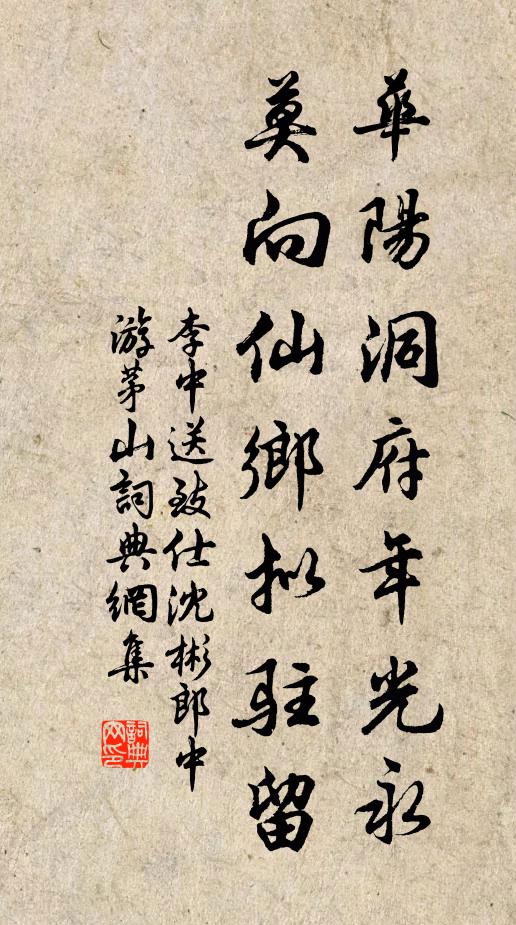 華陽洞府年光永
莫向仙鄉擬駐留
李中送致仕沈彬郎中
游茅山詞典網集
詞典网印